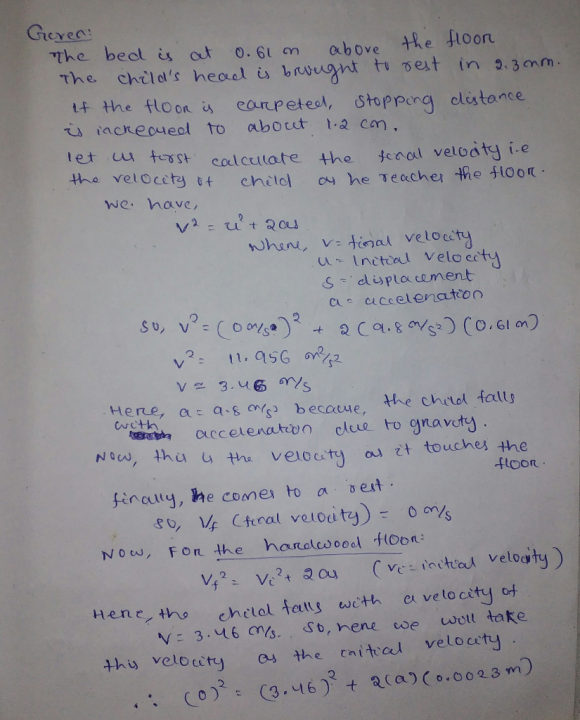 Given:
The bed is at 0.61 m above the floor
The child's head is brought to rest in 2.3 mm.
If the floor is carpeted, stopping distance
is increased to about 1.2 cm.
let us first calculate the final velocity i.e
the velocity of child as he reaches the floor.
we have,
v² = u² + 2as
where, v = final velocity
u = Initial velocity
s = displacement
a = acceleration
so, v² = (0 m/s)² + 2 (9.8 m/s²) (0.61 m)
v² = 11.956 m²/s²
v ≈ 3.46 m/s
Here, a = 9.8 m/s² because, the child falls
with acceleration due to gravity.
Now, this is the velocity as it touches the
floor.
finally, he comes to a rest.
so, Vf (final velocity) = 0 m/s
Now, For the hardwood floor:
Vf² = Vi² + 2as (vi = initial velocity)
Here, the child falls with a velocity of
V = 3.46 m/s. So, here we will take
this velocity as the initial velocity.
∴ (0)² = (3.46)² + 2(a)(0.0023 m)